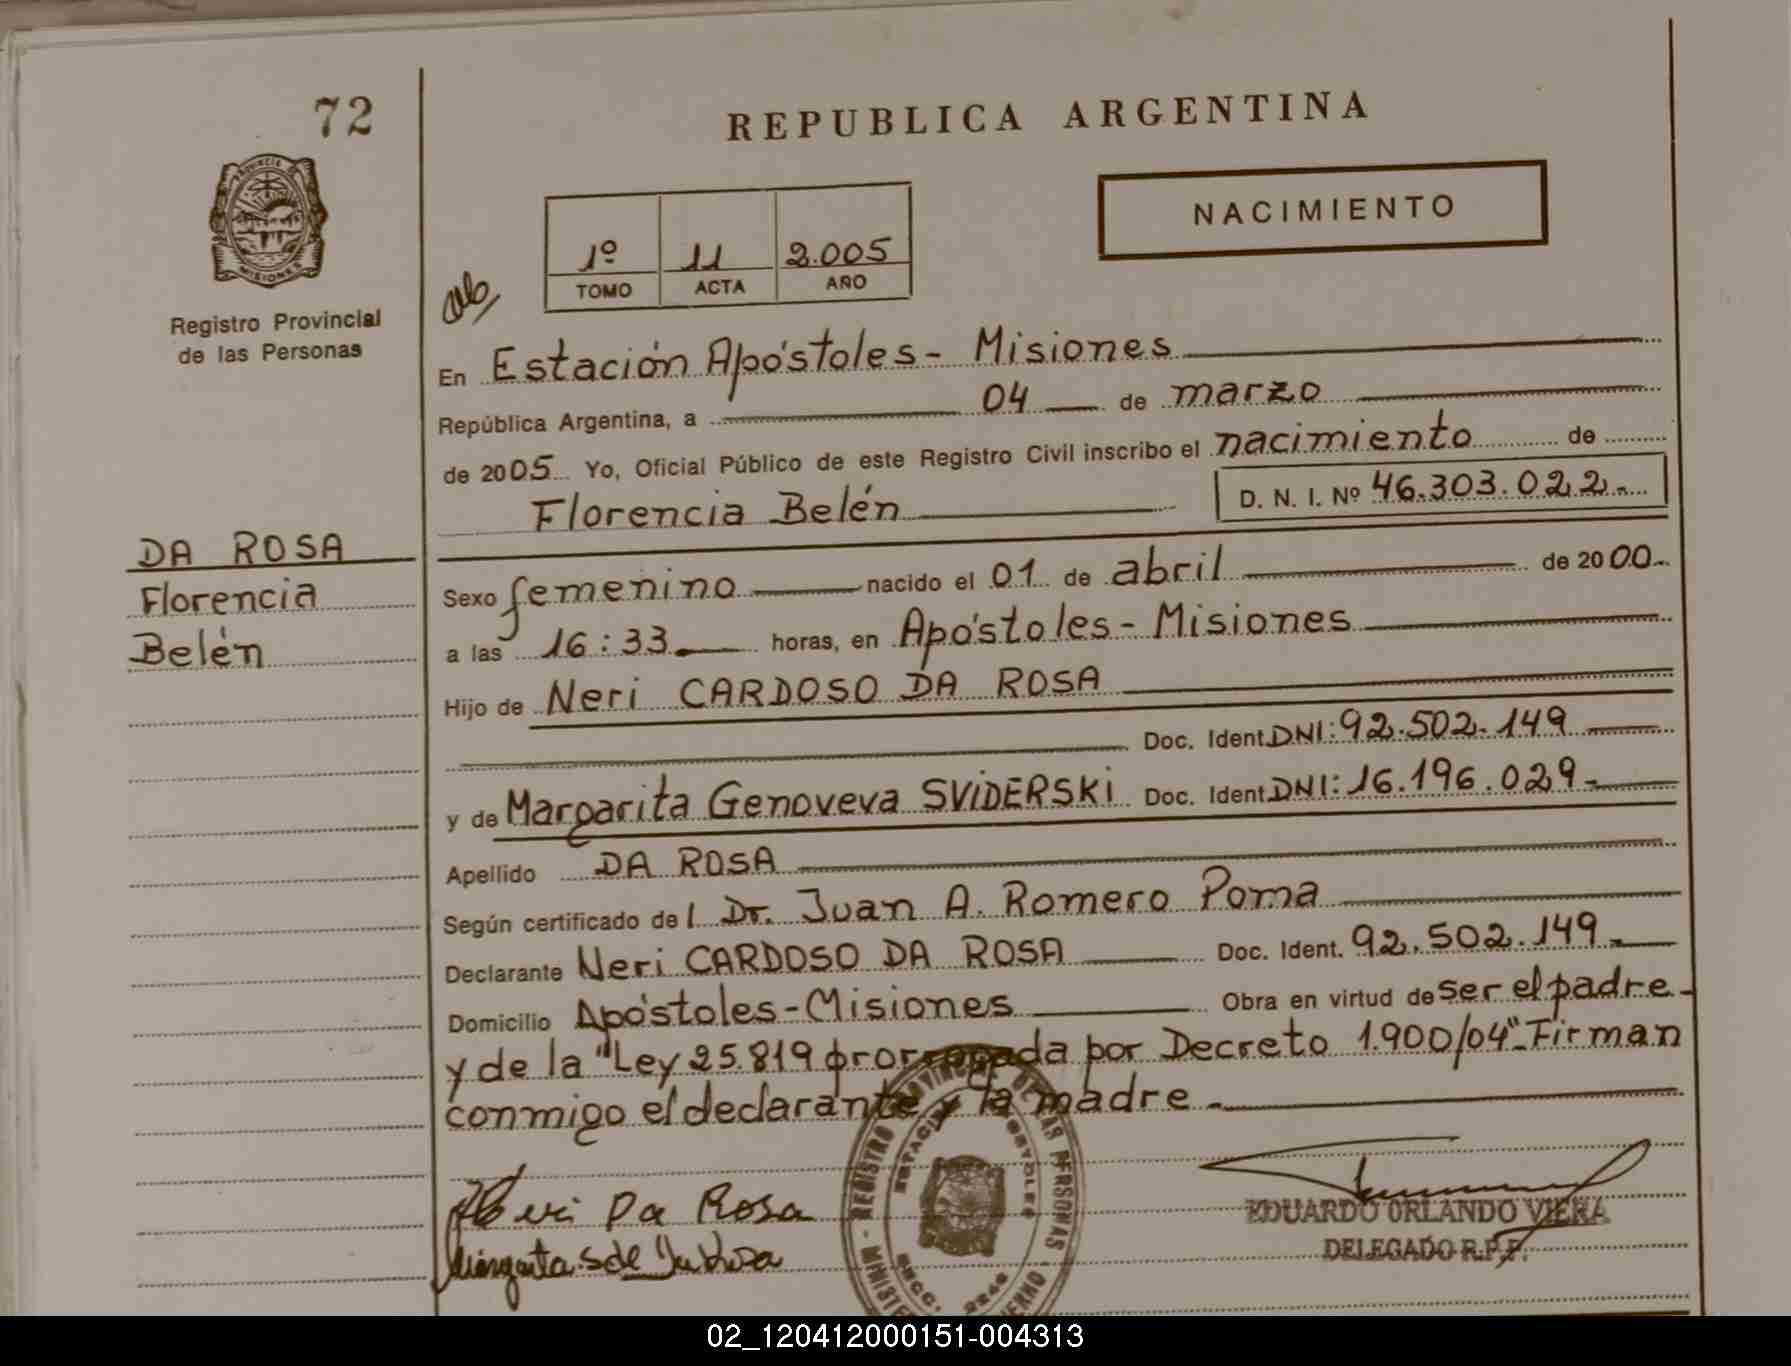 72
REPUBLICA ARGENTINA
PROVINCIA
MISIONES
NACIMIENTO
1º 11 2.005
TOMO ACTA AÑO
Registro Provincial
de las Personas
En Estación Apóstoles - Misiones
República Argentina, a 04 de marzo
de 2005 Yo, Oficial Público de este Registro Civil inscribo el nacimiento de
Florencia Belén D. N. I. Nº 46.303.022.-
DA ROSA
Florencia
Belén
Sexo femenino nacido el 01 de abril de 2000.-
a las 16:33 horas, en Apóstoles - Misiones
Hijo de Neri CARDOSO DA ROSA
Doc. Ident. DNI: 92.502.149
y de Margarita Genoveva SViDERSKi Doc. Ident. DNI: 16.196.029.-
Apellido DA ROSA
Según certificado del Dr. Juan A. Romero Poma
Declarante Neri CARDOSO DA ROSA Doc. Ident. 92.502.149.-
Domicilio Apóstoles - Misiones Obra en virtud de ser el padre -
y de la "Ley 25.819 prorrogada por Decreto 1.900/04"- Firman
conmigo el declarante y la madre.-
Neri Da Rosa
EDUARDO ORLANDO VIERA
DELEGADO R.P.P.
REGISTRO PROVINCIAL DE LAS PERSONAS
02_120412000151-004313